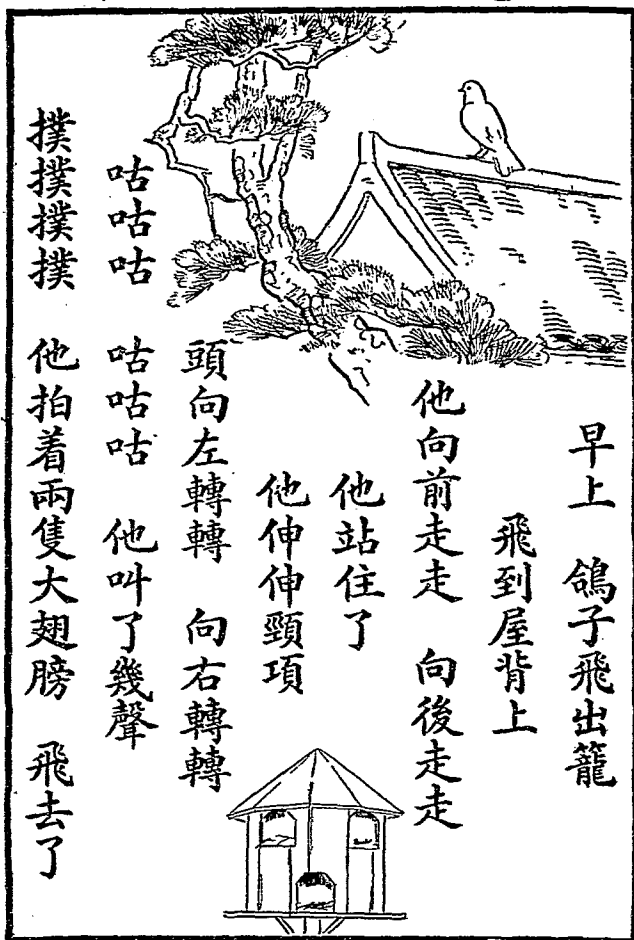 早上　鴿子飛出籠
飛到屋背上
他向前走走　向後走走
他站住了
他伸伸頸項
頭向左轉轉　向右轉轉
咕咕咕　咕咕咕　他叫了幾聲
撲撲撲撲　他拍着兩隻大翅膀　飛去了